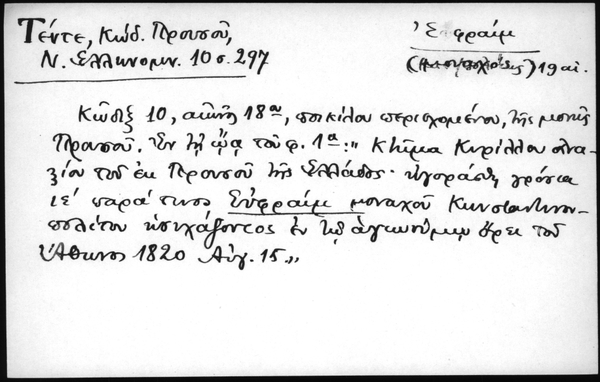 Τέντε, Κώδ. Προυσοῦ,
Ν. Ἑλληνομν. 10 σ. 297
Ἐφραίμ
19 αἰ.
Κῶδιξ 10, αἰῶνος 18ου, ποικίλου περιεχομένου, τῆς μονῆς
Προυσοῦ. Ἐν τῇ ᾤᾳ τοῦ φ. 1α: „ Κτῆμα Κυρίλλου
τοῦ ἐκ Προυσοῦ τῆς Ἑλλάδος· ἠγοράσθη γρόσια
ιε´ παρά τινος Εὐφραίμ μοναχοῦ Κωνσταντινου-
πολίτου ἡσυχάζοντος ἐν τῷ ἁγιωνύμῳ ὄρει τοῦ
Ἄθωνος 1820 Αὐγ. 15„